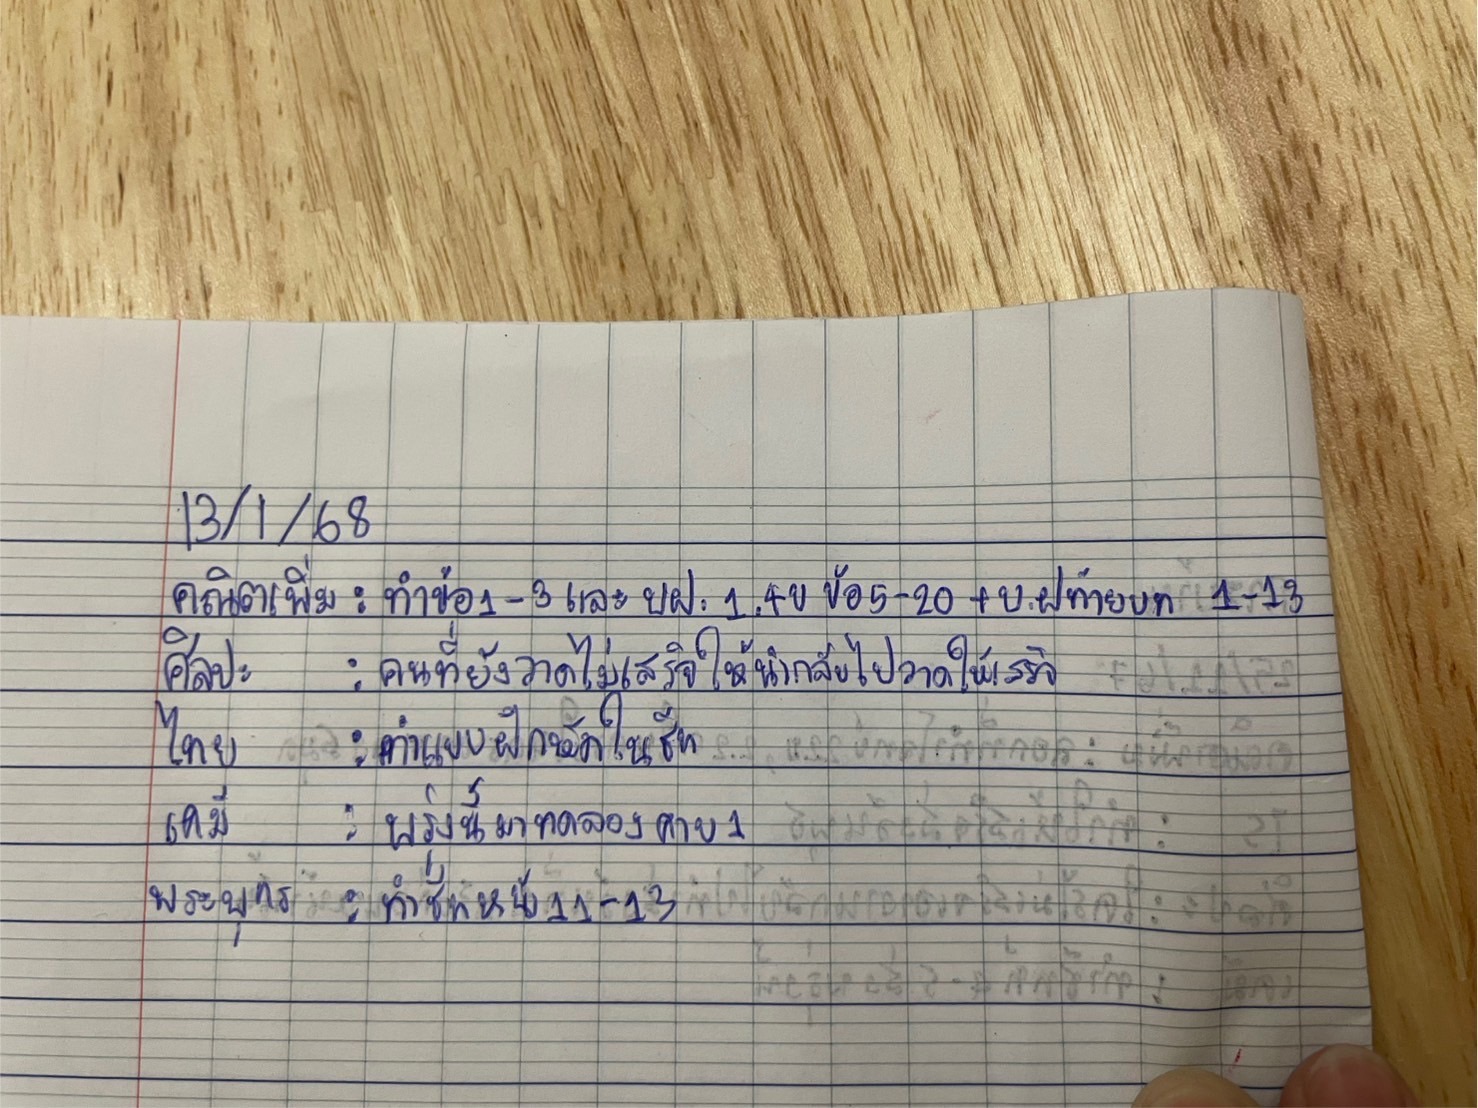 13/1/68
คณิตเพิ่ม : ทำข้อ1-3 และ บฝ. 1.4ข ข้อ5-20 + บ.ฝท้ายบท 1-13
ศิลปะ : คนที่ยังวาดไม่เสร็จให้นำกลับไปวาดให้เสร็จ
ไทย : ทำแบบฝึกหัดในชีท
เคมี : พรุ่งนี้มาทดลองคาบ1
พระพุทธ : ทำชีทหน้า11-13